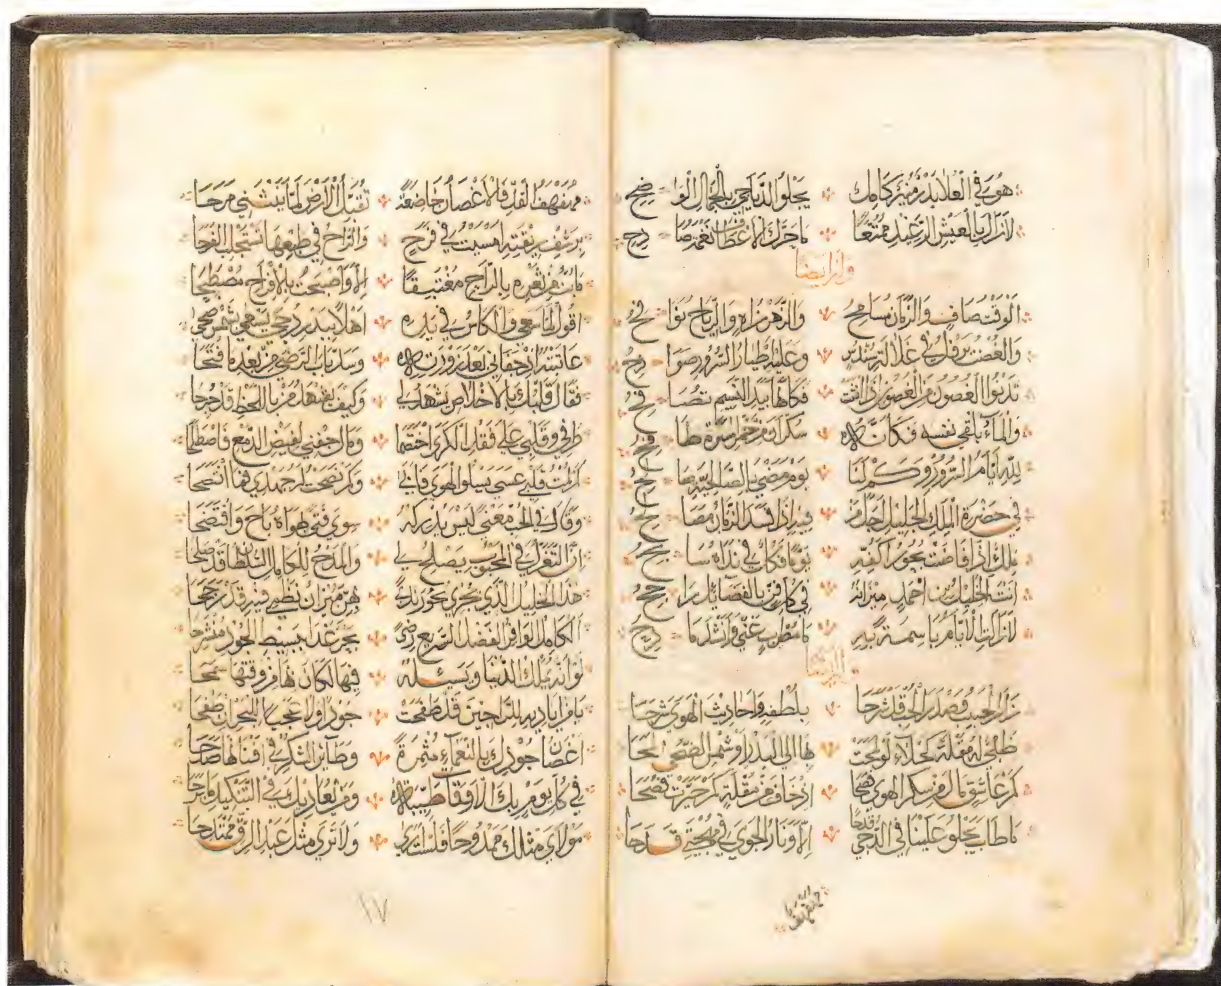 هو في العلا بدر منير كامل يجلو الدياجي بالجمال الواضح
لازال بالعيش الرغيد ممتعا ما حرك الاغصان نغمة صادح
وله ايضا
الوقت صاف والزمان مسامح والزهر زاه والرياح نوافح
والغصن يرفل في غلائل سندس وعليه اطيار السرور صوادح
تدنو الغصون من الغصون اذا انثنت فكأنها بيد النسيم تصافح
والماء يلقي نفسه فكأنه سكران من خمر المسرة طافح
لله ايام السرور وكم لنا يوم مضى بالصالحية صالح
في حضرة الملك الجليل اجل من فيه اذا فسد الزمان مصالح
ملك اذا فاضت بحور اكفه يوما فكل في نداه سابح
انت الخليل بن احمد ميزانه في كل فن بالفضائل راجح
لازالت الايام باسمة به ما مطرب غنى وانشد مادح
وله ايضا
زار الحبيب وصدر قد شرحا بلطفه واحاديث الهوى شرحا
ظبي له مقلة كحلاء لو لمحت بها الى البدر او شمس الضحى لمحا
كم عاشق مال من سكر الهوى فصحا اذ خاف من مقلة كم حيرت فصحا
ما طاب يجلو علينا في الدجى قدحا الا ونار الجوى في مهجتي قدحا
مهفهف
مهفهف القد فالاغصان خاضعة تقبل الارض لما ينثني مرحا
برشف ريقته امسيت في فرح والراح في طبعها تستجلب الفرحا
ما بت من ثغره بالراح مغتبقا الا واصبحت بالافراح مصطبحا
اقول لما سعى والكاس في يده اهلا ببدر دجى يسعى بشمس ضحى
عاتبته اذ جفاني بعد زورته وسد باب الرضى من بعد ما فتحا
فقال قلبك بالاخلاص يشهد لي وكيف يشهد من باللحظ قد جرحا
طرفي وقلبي على فقد الكرى اختصما ومال جفني لفيض الدمع فاصطلحا
المت قلبي عسى يسلو الهوى فابى وكم نصحت له جهدي فما انتصحا
وقال لي في الحب معنى ليس يدركه سوى فتى بهواه باح وافتضحا
ان التغزل في المحبوب يصلح لي والمدح للكامل السلطان قد صلحا
هذا الخليل الذي تجري بحور ندى بهن ميزان نظمي فيه قد رجحا
الكامل الوافر الفضل السريع رضى بحر غدا ببسيط الجود منشرحا
لو انه يملك الدنيا ويسئله فيها لكان لها من وقتها سمحا
يا من اياديه للراجين قد طفحت جودا ولا عجبا للبحر ان طفحا
اغصان جودك بالنعماء مثمرة وطاير الشكر في افنانها صدحا
في كل يوم يريك الاوقات طيبة ومن يعاديك في التنكيد ما برحا
مولاي مثلك ممدوحا فلست ارى ولا ترى مثل عبد الرق ممتدحا
١٧